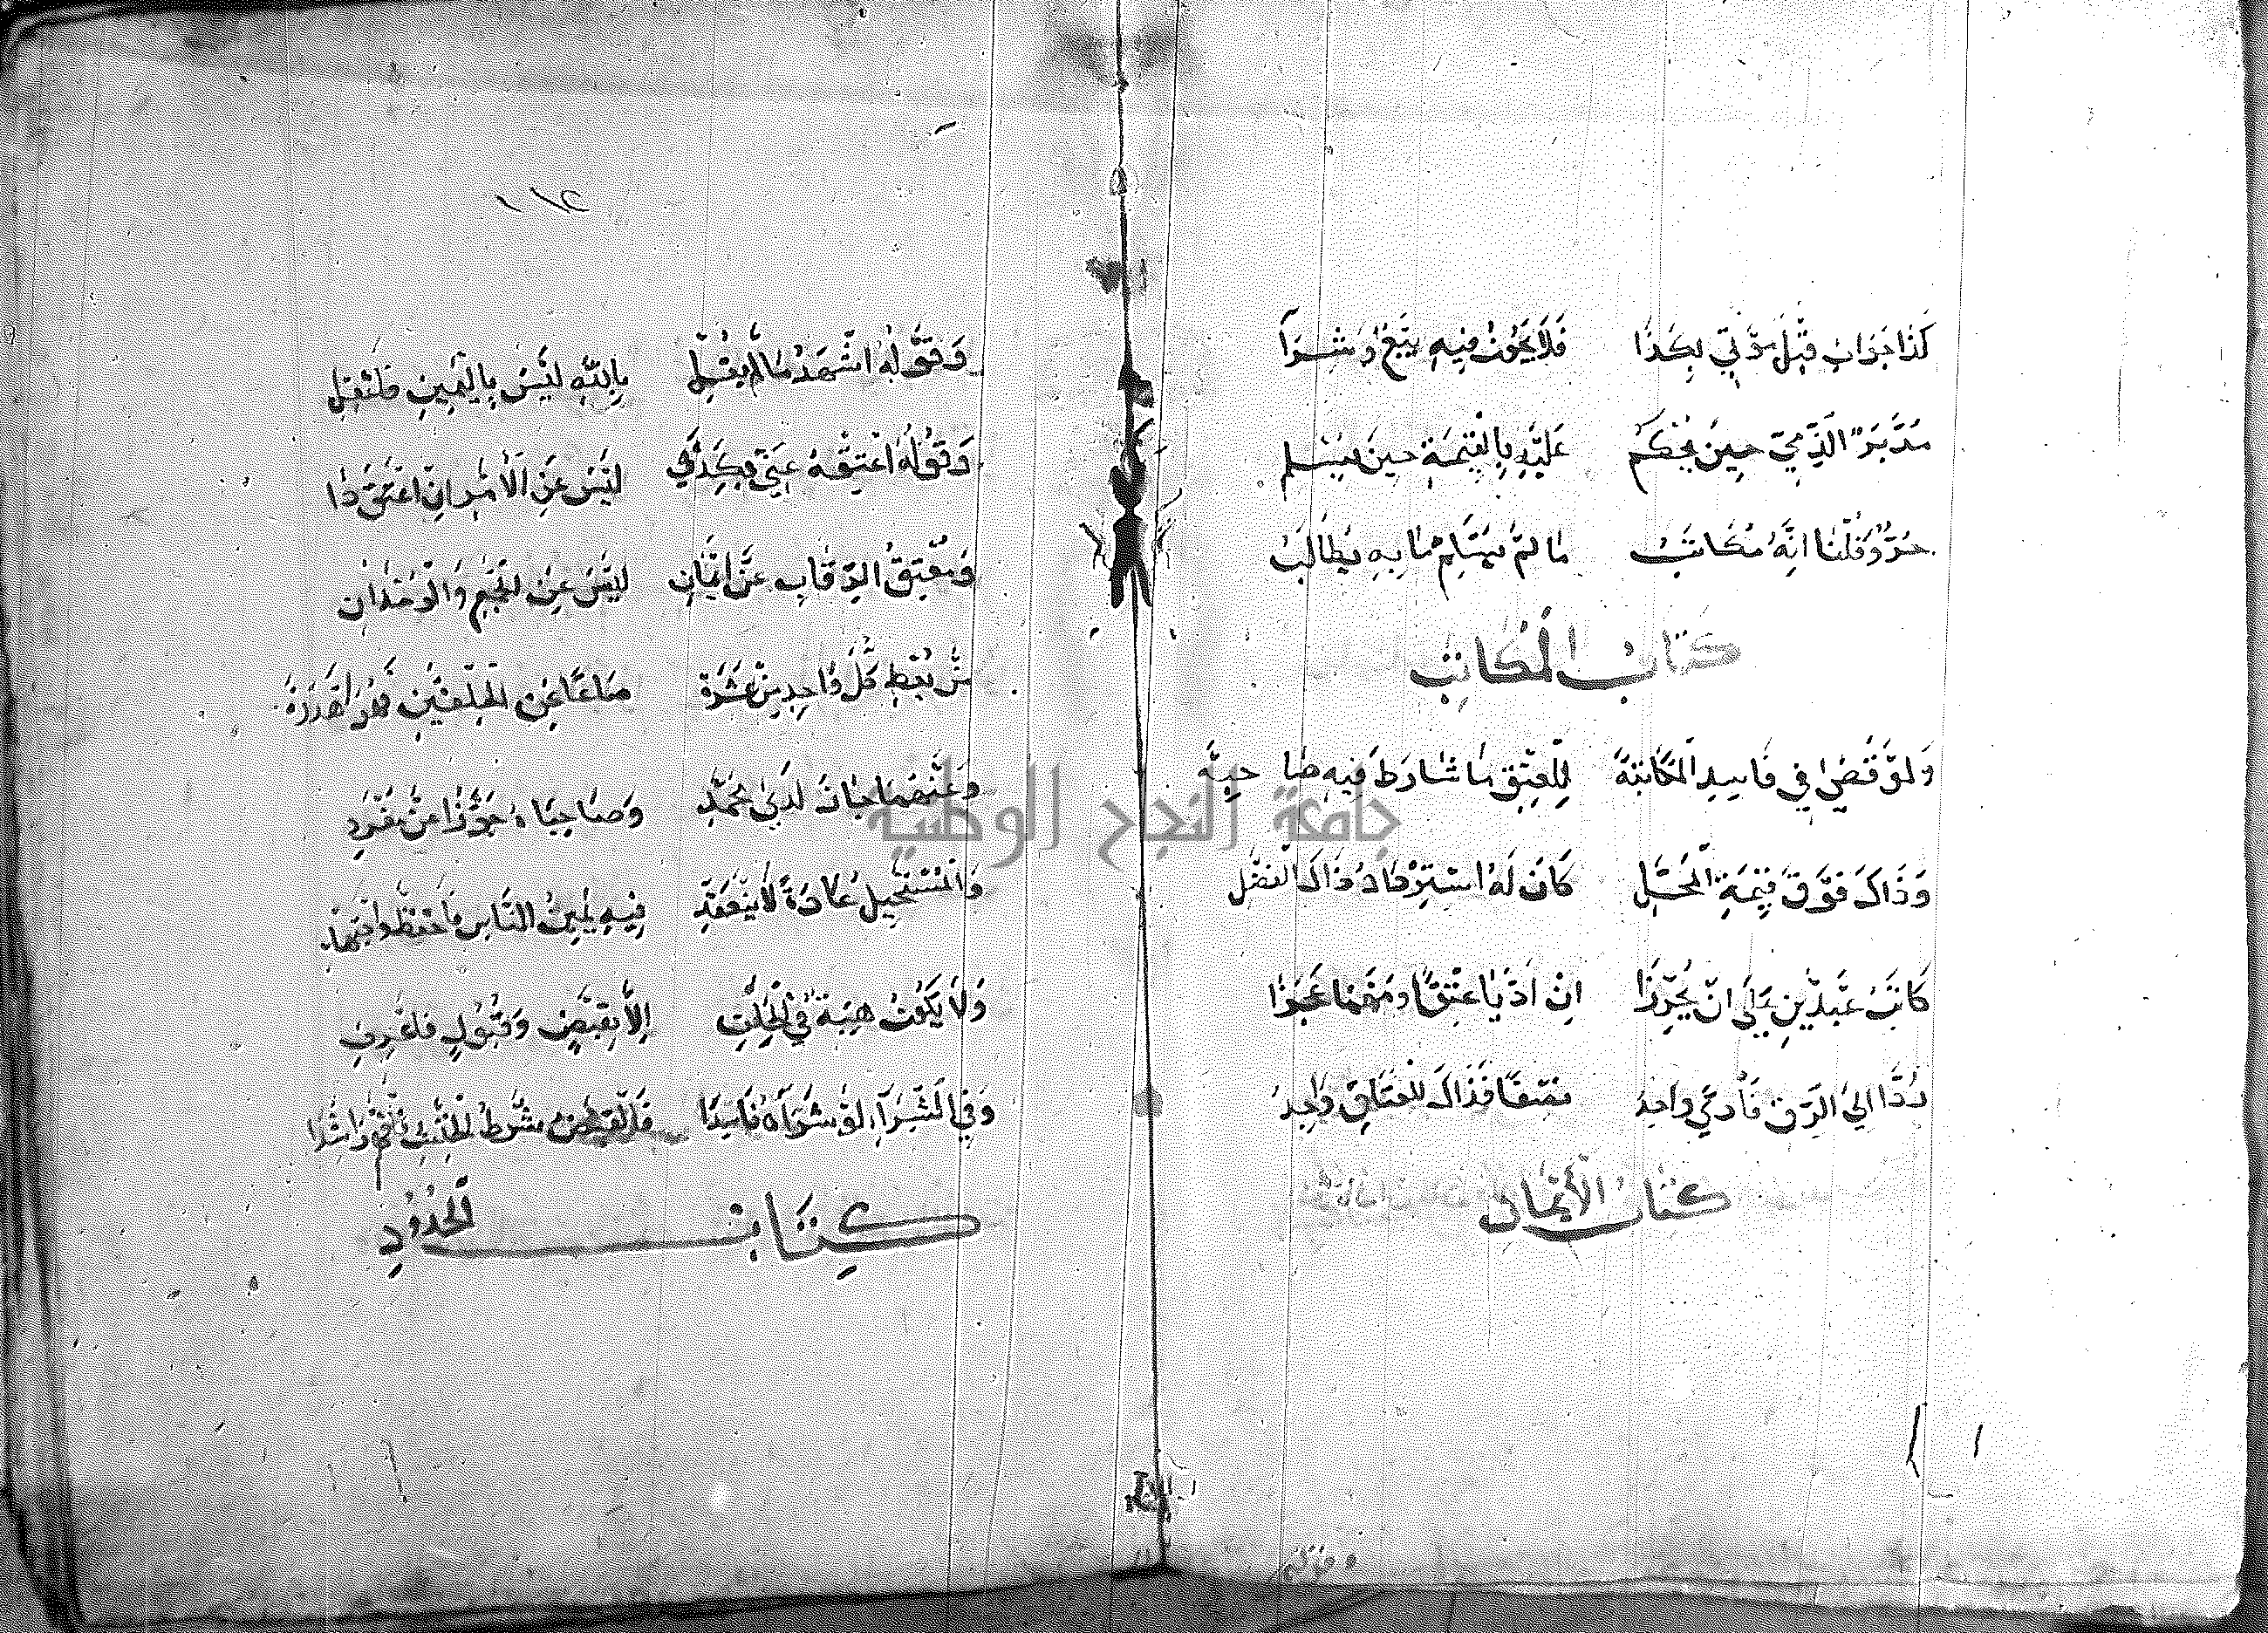 كَذَا جَوَابُ قَبْلَ مَوْتِي بِكَذَا فَلَا يَجُوزُ فِيهِ بَيْعٌ وَشِرَآ
مُدَبَّرُ الذِّمِّيِّ حِينَ يُحْكَمُ عَلَيْهِ بِالْقِيمَةِ حِينَ يُسْلِمُ
حُرٌّ وَقُلْنَا اِنَّهُ مُكَاتَبُ مَا لَمْ يُسَلِّمْ مَا بِهِ يُطَالَبُ
كِتَابُ الْمُكَاتَبِ
وَلَوْ قَضَى فِي فَاسِدِ الْمُكَاتَبَةِ لِلْعِتْقِ مَا شَارَطَ فِيهِ صَاحِبَهْ
وَذَاكَ فَوْقَ قِيمَةِ الْمَحَلِّ كَانَ لَهُ اسْتِرْدَادُ ذَاكَ الْفَضْلِ
كَاتَبَ عَبْدَيْنِ عَلَى اَنْ يُحَرَّرَا اِنْ اَدَّيَا عِتْقًا وَمَهْمَا عَجَزَا
رُدَّا اِلَى الرِّقِّ فَاَدَّى وَاحِدُ نِصْفًا فَذَاكَ لِلْعَتَاقِ وَاجِدُ
كِتَابُ الْأَيْمَانِ
وَقَوْلُهُ اشْهَدُ مَا لَمْ يَقُلِ بِاللّٰهِ لَيْسَ بِالْيَمِينِ فَلْتَقُلِ
وَقَوْلُهُ اعْتِقْهُ عَنِّي بِكَذَى لَيْسَ عَنِ الْاٰمِرِ اِنْ اعْتَقَ ذَا
وَمُعْتِقُ الرِّقَابِ عَنْ اَيْمَانِ لَيْسَ عَنِ الْجَمِيعِ وَالْوُحْدَانِ
مَنْ يُعْطِ كُلَّ وَاحِدٍ مِنْ عَشَرَهْ صَاعًا عَنِ الْحِلْفَيْنِ فَهْوَ اَهْدَرَهْ
وَعَنْهُمَا جَازَ لَدَى مُحَمَّدِ وَصَاحِبَاهُ جَوَّزَا عَنْ مُفْرَدِ
وَالْمُسْتَحِيلُ عَادَةً لَا يَنْعَقِدْ فِيهِ يَمِينُ النَّاسِ فَاحْفَظْ وَاجْتَهِدْ
وَلَا يَكُونُ هِبَةً فِي الْحَلِفِ اِلَّا بِقَبْضٍ وَقَبُولٍ فَاعْرِفِ
وَفِي الشِّرَآءِ لَوْ شَرَاهُ فَاسِدًا فَالْقَبْضُ شَرْطُ الْحِنْثِ رَاشِدَا
كِتَابُ الْحُدُودِ
جامعة النجاح الوطنية